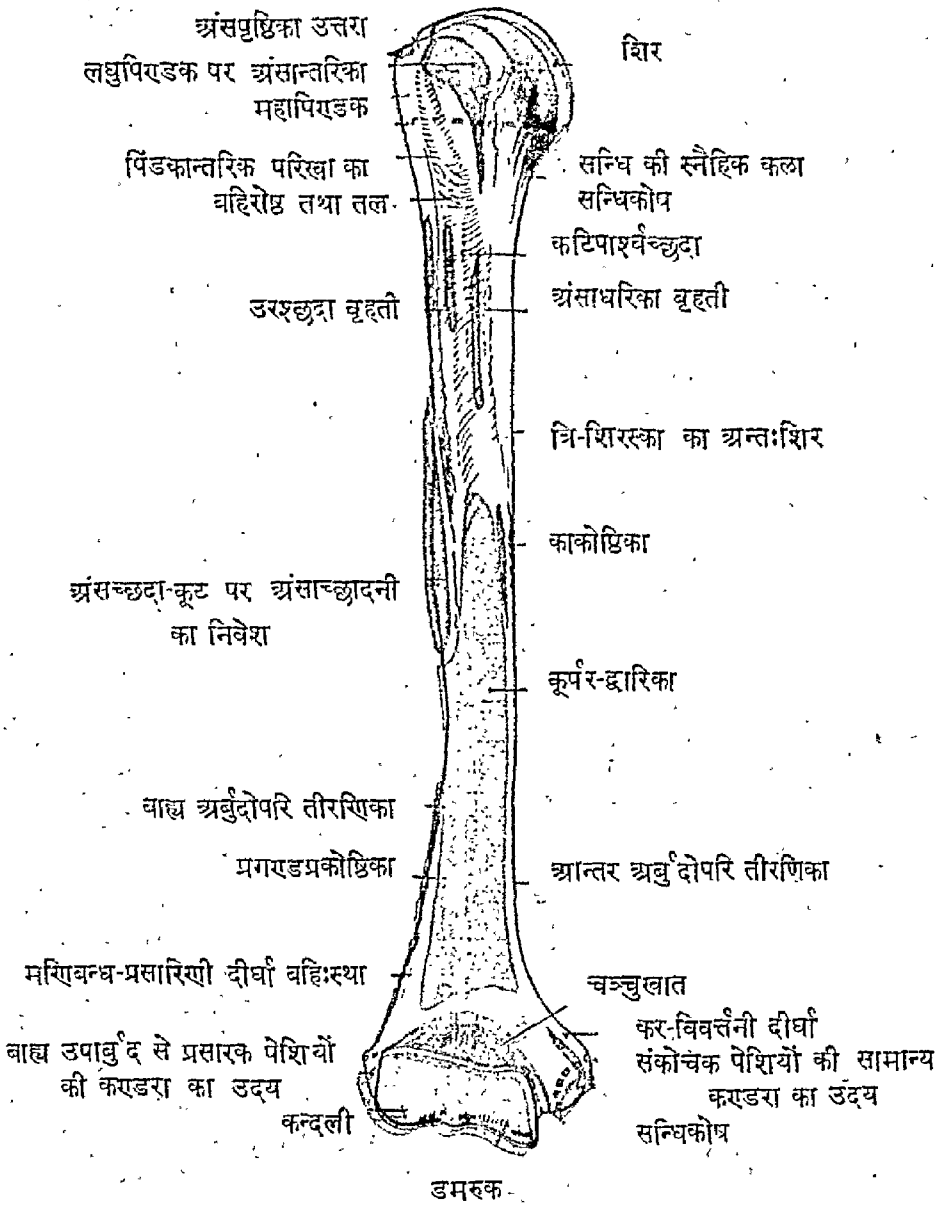 अंसपृष्ठिका उत्तरा
लघुपिण्डक पर अंसान्तरिका
महापिण्डक
पिंडकान्तरिक परिखा का
बहिरोष्ठ तथा तल
उरश्छदा वृहती
अंसच्छदा-कूट पर अंसाच्छादनी
का निवेश
बाह्य अर्बुदोपरि तीरणिका
प्रगण्डप्रकोष्ठिका
मणिबन्ध-प्रसारिणी दीर्घा वहिःस्था
बाह्य उपार्बुद से प्रसारक पेशियों
की कण्डरा का उदय
कन्दली
डमरुक
शिर
सन्धि की स्नैहिक कला
सन्धिकोष
कटिपार्श्वच्छदा
अंसाधरिका वृहती
त्रि-शिरस्का का अन्तःशिर
काकोष्ठिका
कूर्पर-द्वारिका
आन्तर अर्बुदोपरि तीरणिका
चञ्चुखात
कर-विवर्त्तनी दीर्घा
संकोचक पेशियों की सामान्य
कण्डरा का उदय
सन्धिकोष